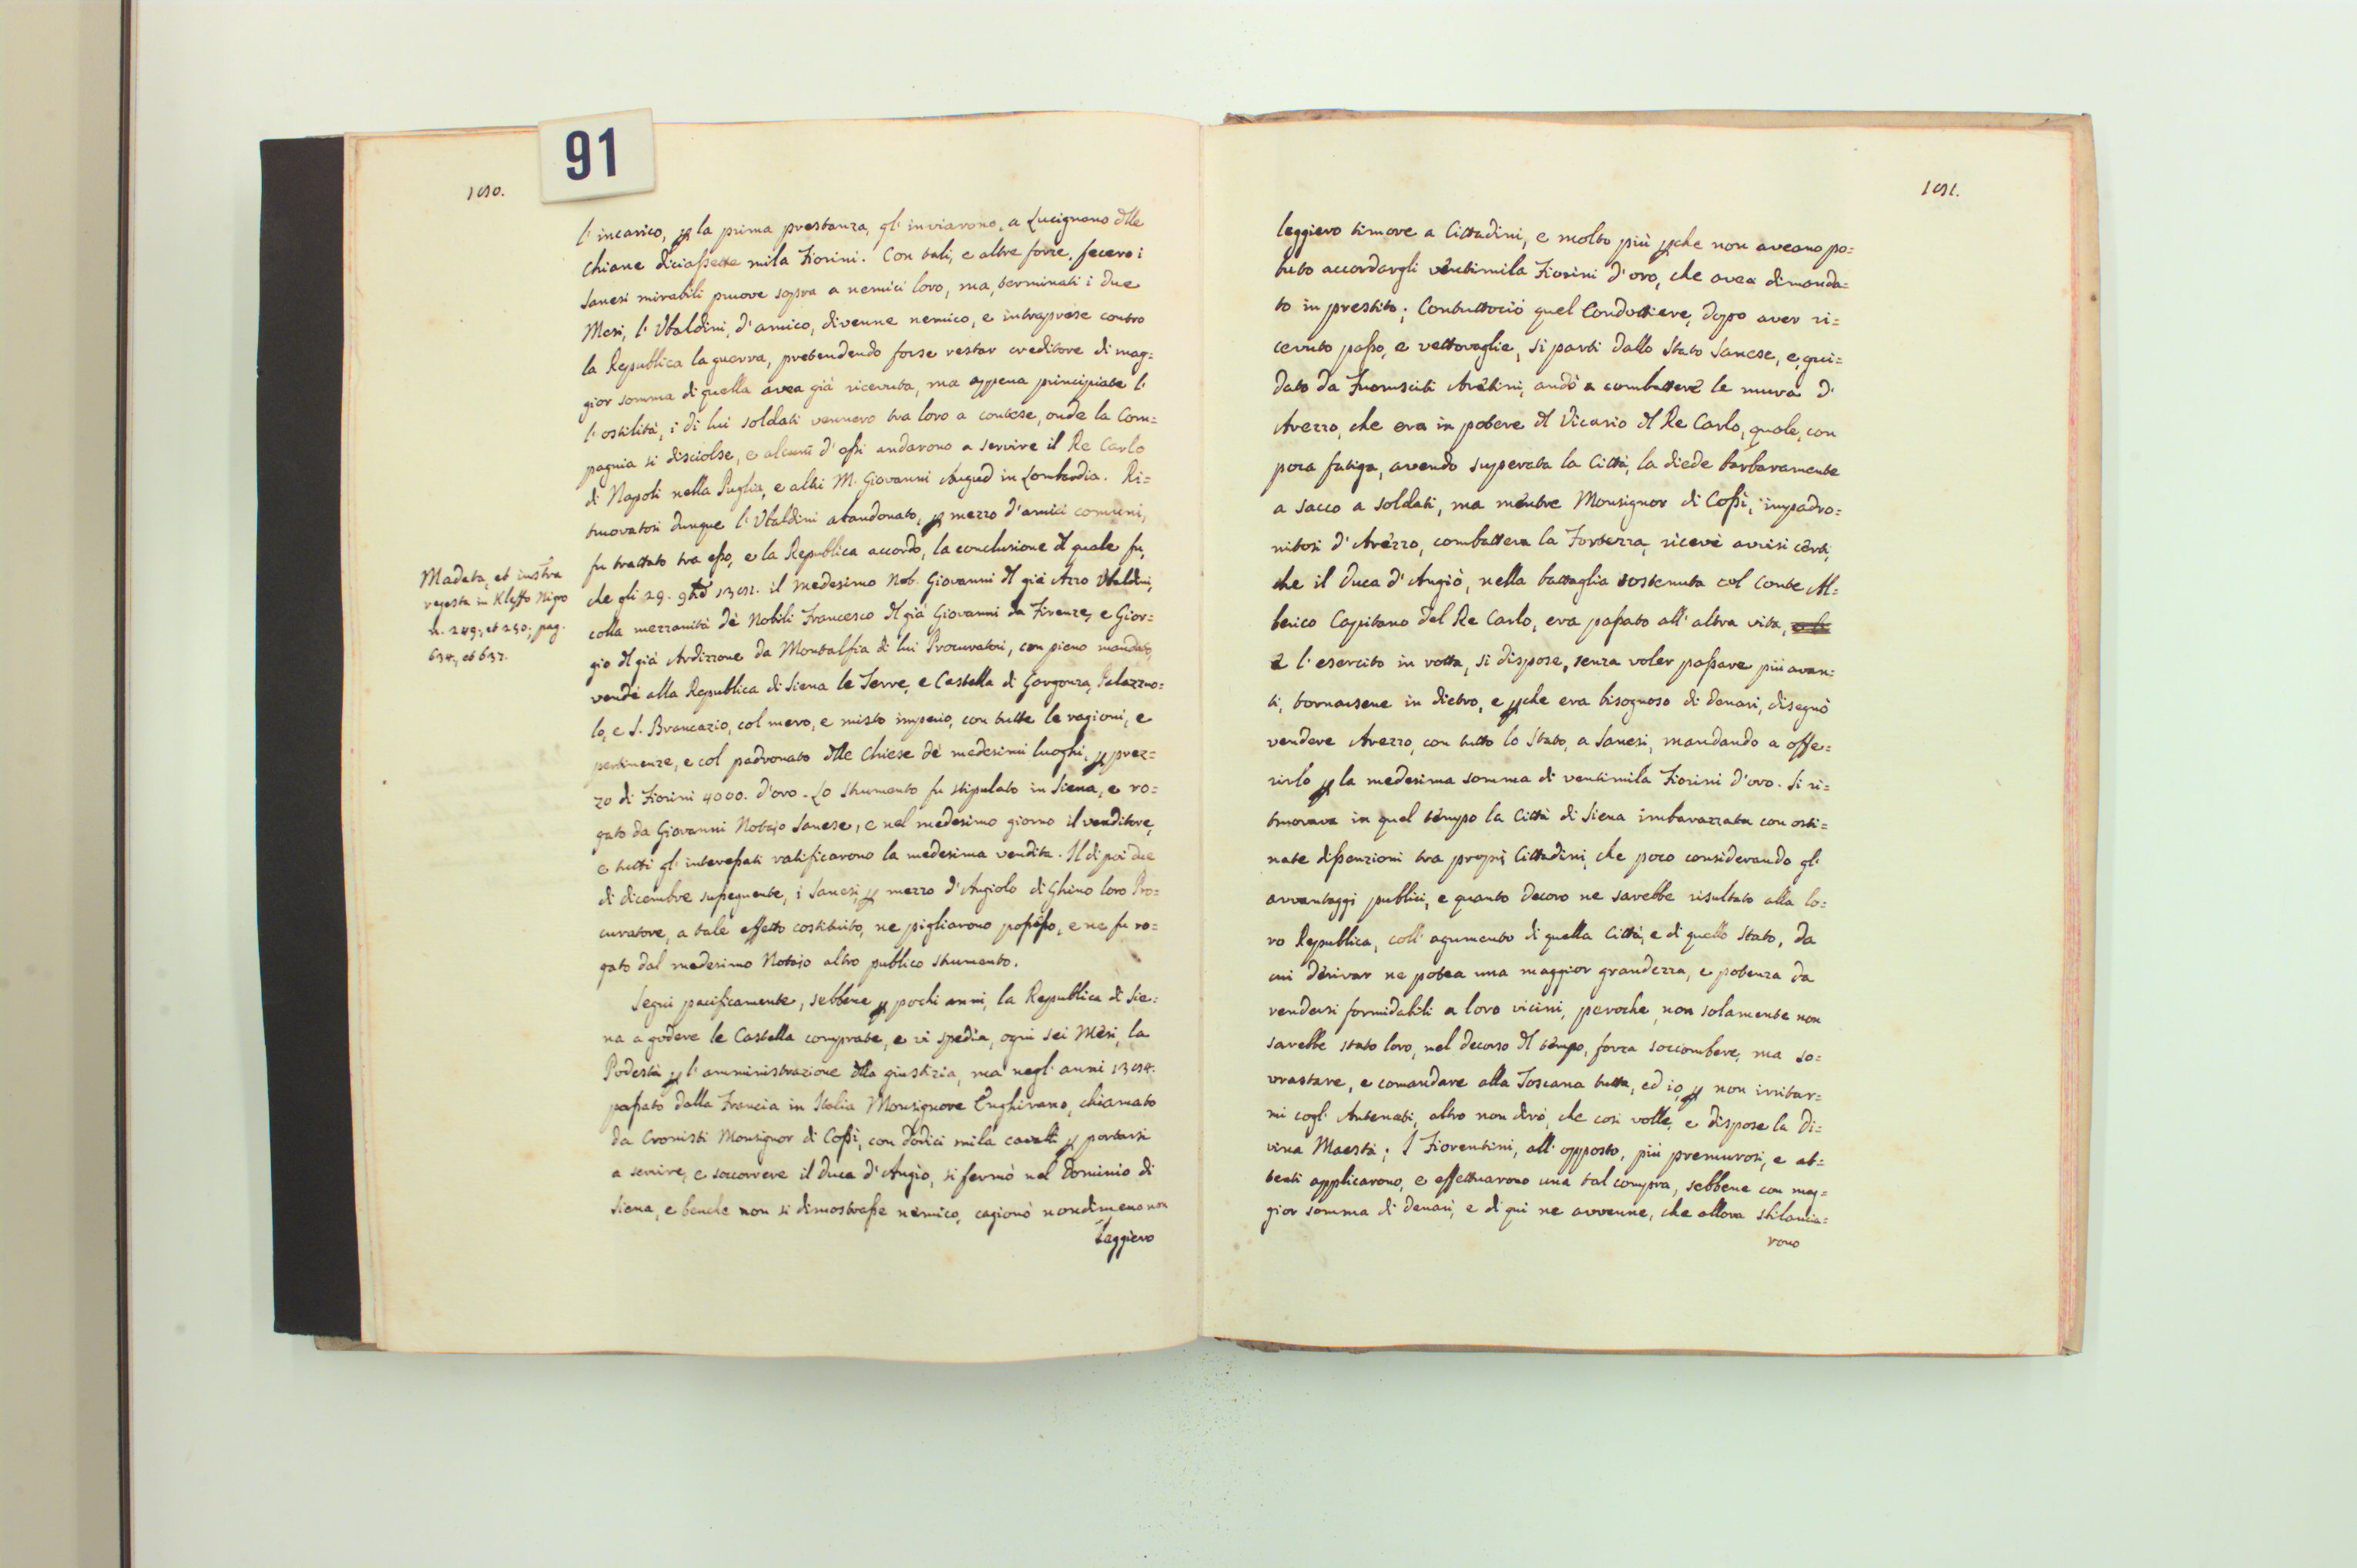 91
l'incarico, p la prima prestanza, gl'inviarono, a Lucignano dlle
Chiane diciassette mila Fiorini. Con tali, e altre forze, fecero i
Sanesi mirabili pruove sopra a nemici loro, ma, terminati i due
Mesi, l'Ubaldini, d'amico, divenne nemico, e intraprese contro
la Republica la guerra, pretendendo forse restar creditore di mag=
gior somma di quella avea già ricevuta, ma appena principiate l'
l'ostilità, i di lui soldati vennero tra loro a contese, onde la Com=
pagnia si disciolse, e alcuni d'essi andarono a servire il Re Carlo
di Napoli nella Puglia, e altri M. Giovanni Augud in Lombardia. Ri=
truovatosi dunque l'Ubaldini abandonato, p mezzo d'amici comuni,
fu trattato tra esso, e la Republica accordo, la conclusione dl quale fu,
che gli 29. il medesimo Nob. Giovanni dl già Azzo Ubaldini,
colla mezzanità de Nobili Francesco dl già Giovanni da Firenze, e Gior=
gio dl già Ardizzone da Montalfia di lui Procuratori, con pieno mandato,
vendè alla Republica di Siena le Terre, e Castella di Gargonza, Palazzuo=
lo, e S. Brancazio, col mero, e misto imperio, con tutte le ragioni, e
pertinenze, e col padronato dlle Chiese de medesimi luoghi, p prez=
zo di Fiorini 4000. d'oro. Lo strumento fu stipulato in Siena, e ro=
gato da Giovanni Notajo Sanese, e nel medesimo giorno il venditore,
e tutti gl'interessati ratificarono la medesima vendita. Il dì poi due
di dicembre susseguente, i Sanesi, p mezzo d'Angiolo di Ghino loro Pro=
curatore, a tale effetto costituito, ne pigliarono possesso, e ne fu ro=
gato dal medesimo Notajo altro publico strumento.
Seguì pacificamente, sebbene p pochi anni, la Republica di Sie=
na a godere le Castella comprate, e vi spedia, ogni sei Mesi, la
Podestà p l'amministrazione dlla giustizia, ma negl'anni
passato dalla Francia in Italia Monsignore Enghirano, chiamato
da Cronisti Monsignor di Cossì, con dodici mila cavalli p portarsi
a servire, e soccorrere il Duca d'Angiò, si fermò nel Dominio di
Siena, e benche non si dimostrasse nemico, cagionò nondimeno non
leggiero
Madata, et instra
regesta in Kleffo Nigro
n. 249, et 250, pag.
634, et 637.
leggiero timore a Cittadini, e molto più pche non aveano po=
tuto accordargli ventimila Fiorini d'oro, che avea dimanda=
to in prestito; Contuttociò quel Condottiere, dopo aver ri=
cevuto passo, e vettovaglie, si partì dallo Stato Sanese, e, gui=
dato da Fuorusciti Aretini, andò a combattere le mura d'
Arezzo, che era in potere dl Vicario dl Re Carlo, quale, con
poca fatiga, avendo superata la Città, la diede barbaramente
a sacco a soldati, ma mentre Monsignor di Cossì, impadro=
nitosi d'Arezzo, combatteva la Fortezza, ricevè avvisi certi,
che il Duca d'Angiò, nella battaglia sostenuta col Conte Al=
berico Capitano del Re Carlo, era passato all'altra vita,
e l'esercito in rotta, si dispose, senza voler passare più avan=
ti, tornarsene in dietro, e pche era bisognoso di denari, disegnò
vendere Arezzo, con tutto lo Stato, a Sanesi, mandando a offe=
rirlo p la medesima somma di ventimila Fiorini d'oro. Si ri=
truovava in quel tempo la Città di Siena imbarazzata con osti=
nate dissenzioni tra proprj Cittadini, che poco considerando gl'
avvantaggi publici, e quanto decoro ne sarebbe risultato alla lo=
ro Republica, coll'agumento di quella Città, e di quello Stato, da
cui derivar ne potea una maggior grandezza, e potenza da
rendersi formidabili a loro vicini, peroche, non solamente non
sarebbe stato loro, nel decorso dl tempo, forza soccombere, ma so=
vrastare, e comandare alla Toscana tutta, ed io, p non irritar=
mi cogl'Antenati, altro non dirò, che così volle, e dispose la Di=
vina Maestà; I Fiorentini, all'opposto, più premurosi, e at=
tenti applicarono, e effettuarono una tal compra, sebbene con mag=
gior somma di denari, e di qui ne avvenne, che allora sbilancia=
rono